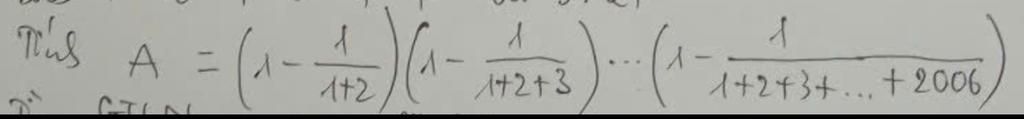 Tính A = (1 - 1/(1+2))(1 - 1/(1+2+3)) ... (1 - 1/(1+2+3+...+2006))